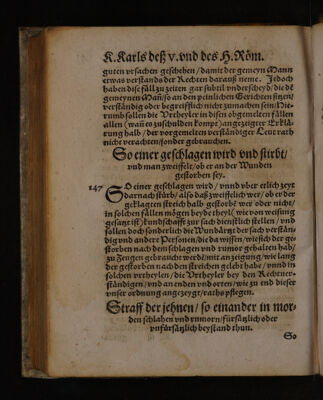 K. Karls deß v. vnd des H. Röm.
guten vrsachen geschehen / damit der gemeyn Mann
etwas verstands der Rechten darauß neme. Jedoch
haben dise fäll zu zeiten gar subtil vnderscheyd / die dē
gemeynen Mañ / so an den peinlichen Gerichten sitzen /
verständig oder begreifflich nicht zumachen sein / Hie-
rumb sollen die Vrtheyler in disen obgemelten fällen
allen / wañ es zuschulden kompt) angezeygter Erklä
rung halb / der vorgemelten verständiger Leut rath
nicht verachten / sonder gebrauchen.
So einer geschlagen wird vnd stirbt /
vnd man zweiffelt / ob er an der Wunden
gestorben sey.
147 SO einer geschlagen wird / vnnd vber etlich zeyt
darnach stürb / also daß zweiffelich wer / ob er der
geklagten streich halb gestorbē wer oder nicht /
in solchen fällen mögen beyde theyl / wie von weisung
gesatzt ist / kundschafft zur sach dienstlich stellen / vnd
sollen doch sonderlich die Wundärtzt der sach verstän-
dig vnd ander Personen / die da wissen / wie sich der ge-
storben nach dem schlagen vnd rumor gehalten hab /
zu Zeugen gebraucht werdē / mit anzeigung / wie lang
der gestorben nach den streichen gelebt habe / vnnd in
solchen vrtheylen / die Vrtheyler bey den Rechtuer-
ständigen / vnd an enden vnd orten / wie zu end dieser
vnser ordnung angezeygt / raths pflegen.
Straff der jehnen / so einander in mor-
den schlahen vnd rumorn / fürsätzlich oder
vnfürsätzlich beystand thun.
So